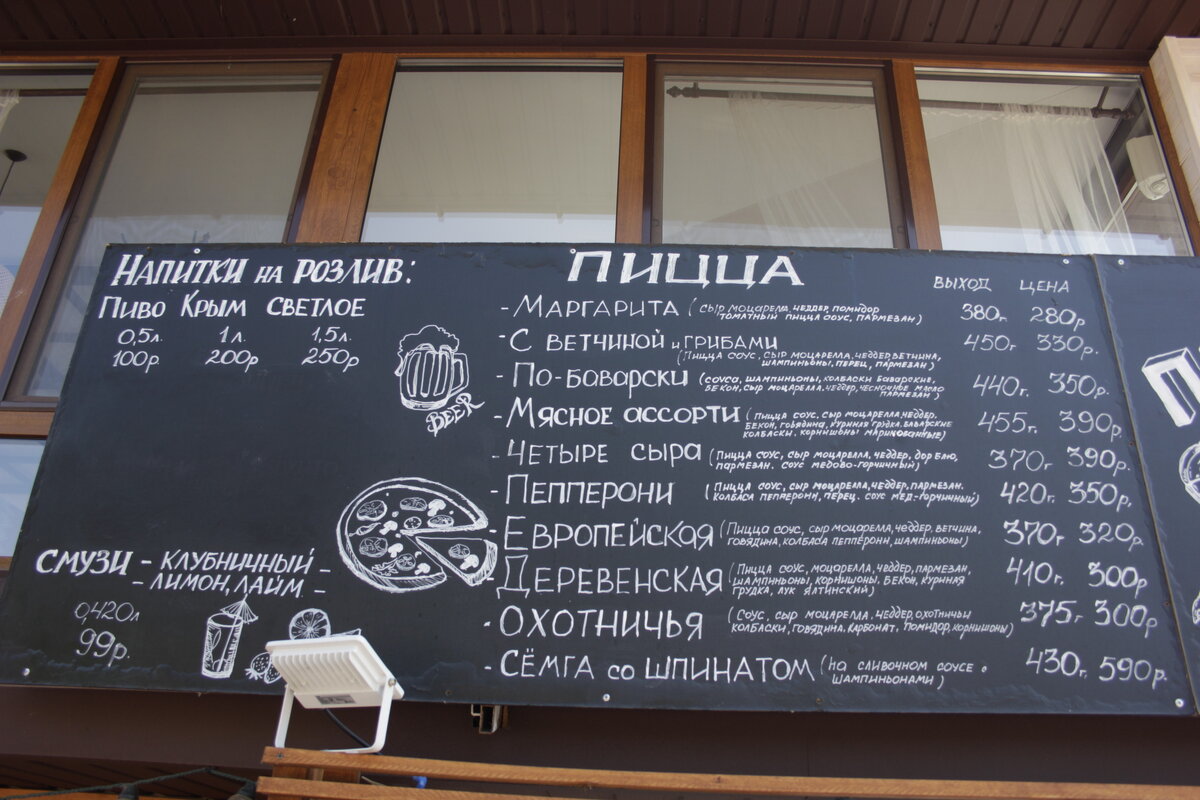 НАПИТКИ НА РОЗЛИВ:
ПИВО КРЫМ СВЕТЛОЕ
0,5л. 1л. 1,5л.
100р 200р 250р
BEER
СМУЗИ - КЛУБНИЧНЫЙ -
- ЛИМОН, ЛАЙМ -
0,420л
99р.
ПИЦЦА
ВЫХОД ЦЕНА
- МАРГАРИТА (СЫР МОЦАРЕЛЛА, ЧЕДДЕР, ПОМИДОР 380г 280р
ТОМАТНЫЙ ПИЦЦА СОУС, ПАРМЕЗАН)
- С ВЕТЧИНОЙ и ГРИБАМИ 450г 330р.
(ПИЦЦА СОУС, СЫР МОЦАРЕЛЛА, ЧЕДДЕР, ВЕТЧИНА,
ШАМПИНЬОНЫ, ПЕРЕЦ, ПАРМЕЗАН)
- ПО-БАВАРСКИ (СОУСА, ШАМПИНЬОНЫ, КОЛБАСКИ БАВАРСКИЕ, 440г. 350р.
БЕКОН, СЫР МОЦАРЕЛЛА, ЧЕДДЕР, ЧЕСНОЧНОЕ МАСЛО
ПАРМЕЗАН)
- МЯСНОЕ АССОРТИ (ПИЦЦА СОУС, СЫР МОЦАРЕЛЛА, ЧЕДДЕР, 455г. 390р.
БЕКОН, ГОВЯДИНА, КУРИНАЯ ГРУДКА, БАВАРСКИЕ
КОЛБАСКИ, КОРНИШОНЫ МАРИНОВАННЫЕ)
- ЧЕТЫРЕ СЫРА (ПИЦЦА СОУС, СЫР МОЦАРЕЛЛА, ЧЕДДЕР, ДОР БЛЮ, 370г 390р.
ПАРМЕЗАН. СОУС МЕДОВО-ГОРЧИЧНЫЙ)
- ПЕППЕРОНИ (ПИЦЦА СОУС, СЫР МОЦАРЕЛЛА, ЧЕДДЕР, ПАРМЕЗАН. 420г. 350р.
КОЛБАСА ПЕППЕРОНИ, ПЕРЕЦ. СОУС МЕД-ГОРЧИЧНЫЙ)
- ЕВРОПЕЙСКАЯ (ПИЦЦА СОУС, СЫР МОЦАРЕЛЛА, ЧЕДДЕР, ВЕТЧИНА, 370г. 320р.
ГОВЯДИНА, КОЛБАСА ПЕППЕРОНИ, ШАМПИНЬОНЫ)
- ДЕРЕВЕНСКАЯ (ПИЦЦА СОУС, МОЦАРЕЛЛА, ЧЕДДЕР, ПАРМЕЗАН, 410г. 300р
ШАМПИНЬОНЫ, КОРНИШОНЫ. БЕКОН, КУРИНАЯ
ГРУДКА, ЛУК ЯЛТИНСКИЙ)
- ОХОТНИЧЬЯ (СОУС, СЫР МОЦАРЕЛЛА, ЧЕДДЕР, ОХОТНИЧЬИ 375г. 300р.
КОЛБАСКИ, ГОВЯДИНА. КАРБОНАТ, ПОМИДОР, КОРНИШОНЫ)
- СЁМГА СО ШПИНАТОМ (НА СЛИВОЧНОМ СОУСЕ с 430г. 590р.
ШАМПИНЬОНАМИ)